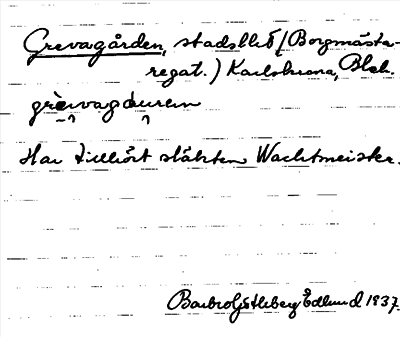 Grevagården, stadsdel (Borgmästa-
regat.) Karlskrona, Blek.
grèvagɑurem
Har tillhört släkten Wachtmeister.
Edlund 1937.